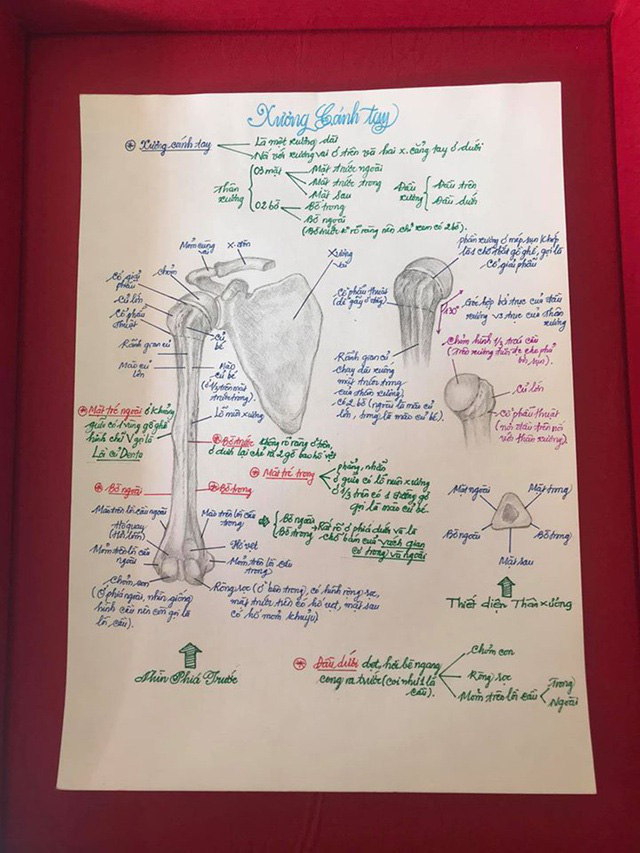 Xương Cánh tay
Xương cánh tay
Là một xương dài
Nối với xương vai ở trên và hai x. cẳng tay ở dưới
Thân xương
03 mặt
Mặt trước ngoài
Mặt trước trong
Mặt sau
02 bờ
Bờ trong
Bờ ngoài
(Bờ trước k rõ ràng nên chỉ xem có 2 bờ).
Đầu xương
Đầu trên
Đầu dưới
Mỏm cùng
x. đòn
Xương vai
chỏm
Cổ giải phẫu
Củ lớn
Cổ phẫu thuật
Rãnh gian củ
Mào củ lớn
Củ bé
Mào củ bé
(ở 1/3 trên mặt
trước trong).
Lỗ nuôi xương
phần xương ở mép sụn khớp
là 1 chỗ thắt gồ ghề, gọi là
Cổ giải phẫu
Cổ phẫu thuật
(dễ gãy ở đây)
130°
Góc hợp bởi trục của đầu
xương và trục của thân
xương
Rãnh gian củ
chạy dài xuống
mặt trước trong
của thân xương.
Chia 2 bờ (ngoài là mào củ
lớn, trong là mào củ bé).
Chỏm hình 1/3 trái cầu
Củ lớn
Cổ phẫu thuật
(nối đầu trên và
với thân xương).
Mặt trc ngoài ở khoảng
giữa có 1 vùng gồ ghề
hình chữ V gọi là
Là củ Delta
Bờ trước không rõ ràng ở trên,
Mặt trc trong
phẳng, nhẵn
ở giữa có lỗ nuôi xương
ở 1/3 trên có 1 đường gồ
gọi là mào củ bé.
Bờ ngoài
Bờ trong
Bờ ngoài
Bờ trong
Rất rõ ở phía dưới và là
chỗ bám của vách gian
cơ trong và ngoài
Mào trên lồi cầu ngoài
Hố quay
Mỏm trên lồi cầu
ngoài
Chỏm con
(Ở phía ngoài, nhìn giống
hình cầu nên còn gọi là
lồi cầu).
Mào trên lồi cầu
trong
Hố vẹt
Mỏm trên lồi cầu
trong
Ròng rọc (ở bên trong), có hình ròng rọc,
mặt trước trên có hố vẹt, mặt sau
có hố mỏm khuỷu
Mặt ngoài
Mặt trong
Bờ ngoài
Bờ trong
Mặt sau
Thiết diện Thân xương
Nhìn Phía Trước
Đầu dưới dẹt, hơi bè ngang
cong ra trước (coi như 1 lồi
cầu).
Chỏm con
Ròng rọc
Mỏm trên lồi cầu
Trong
Ngoài